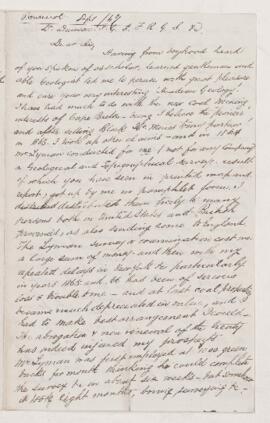 Dear Sir,
Having from boyhood heard
of you spoken of as scholar, learned gentleman and
able Geologist led me to peruse with great pleasure
and care your very interesting "Acadian Geology".
I have had much to do with the coal mining
interests of Cape Breton being I believe the pioneer
and after selling Block House Mine
in 1863. I took up other areas and in 1864
Mr Lyman conducted for me (not for any Company)
a Geological and Topographical Survey result
of which you have seen in printed map and
report, got up by me in pamphlet form, I
distributed them freely to many
persons both in United States and British
provinces, as also sending some to England.
The Lyman Survey & examination cost me
a large sum of money and then with my
repeated delays in New York & particularly
in years 1865 and 66 had been of serious
loss & trouble to me and as last coal property
became much depreciated in value, and I
had to make best arrangement I could.
The abrogation & non renewal of the Treaty
was indeed injured my prospects
Mr Lyman was first employed at
bucks per month thinking he could complete
the survey &c in about six weeks but
it took eight months, boring surveying &c